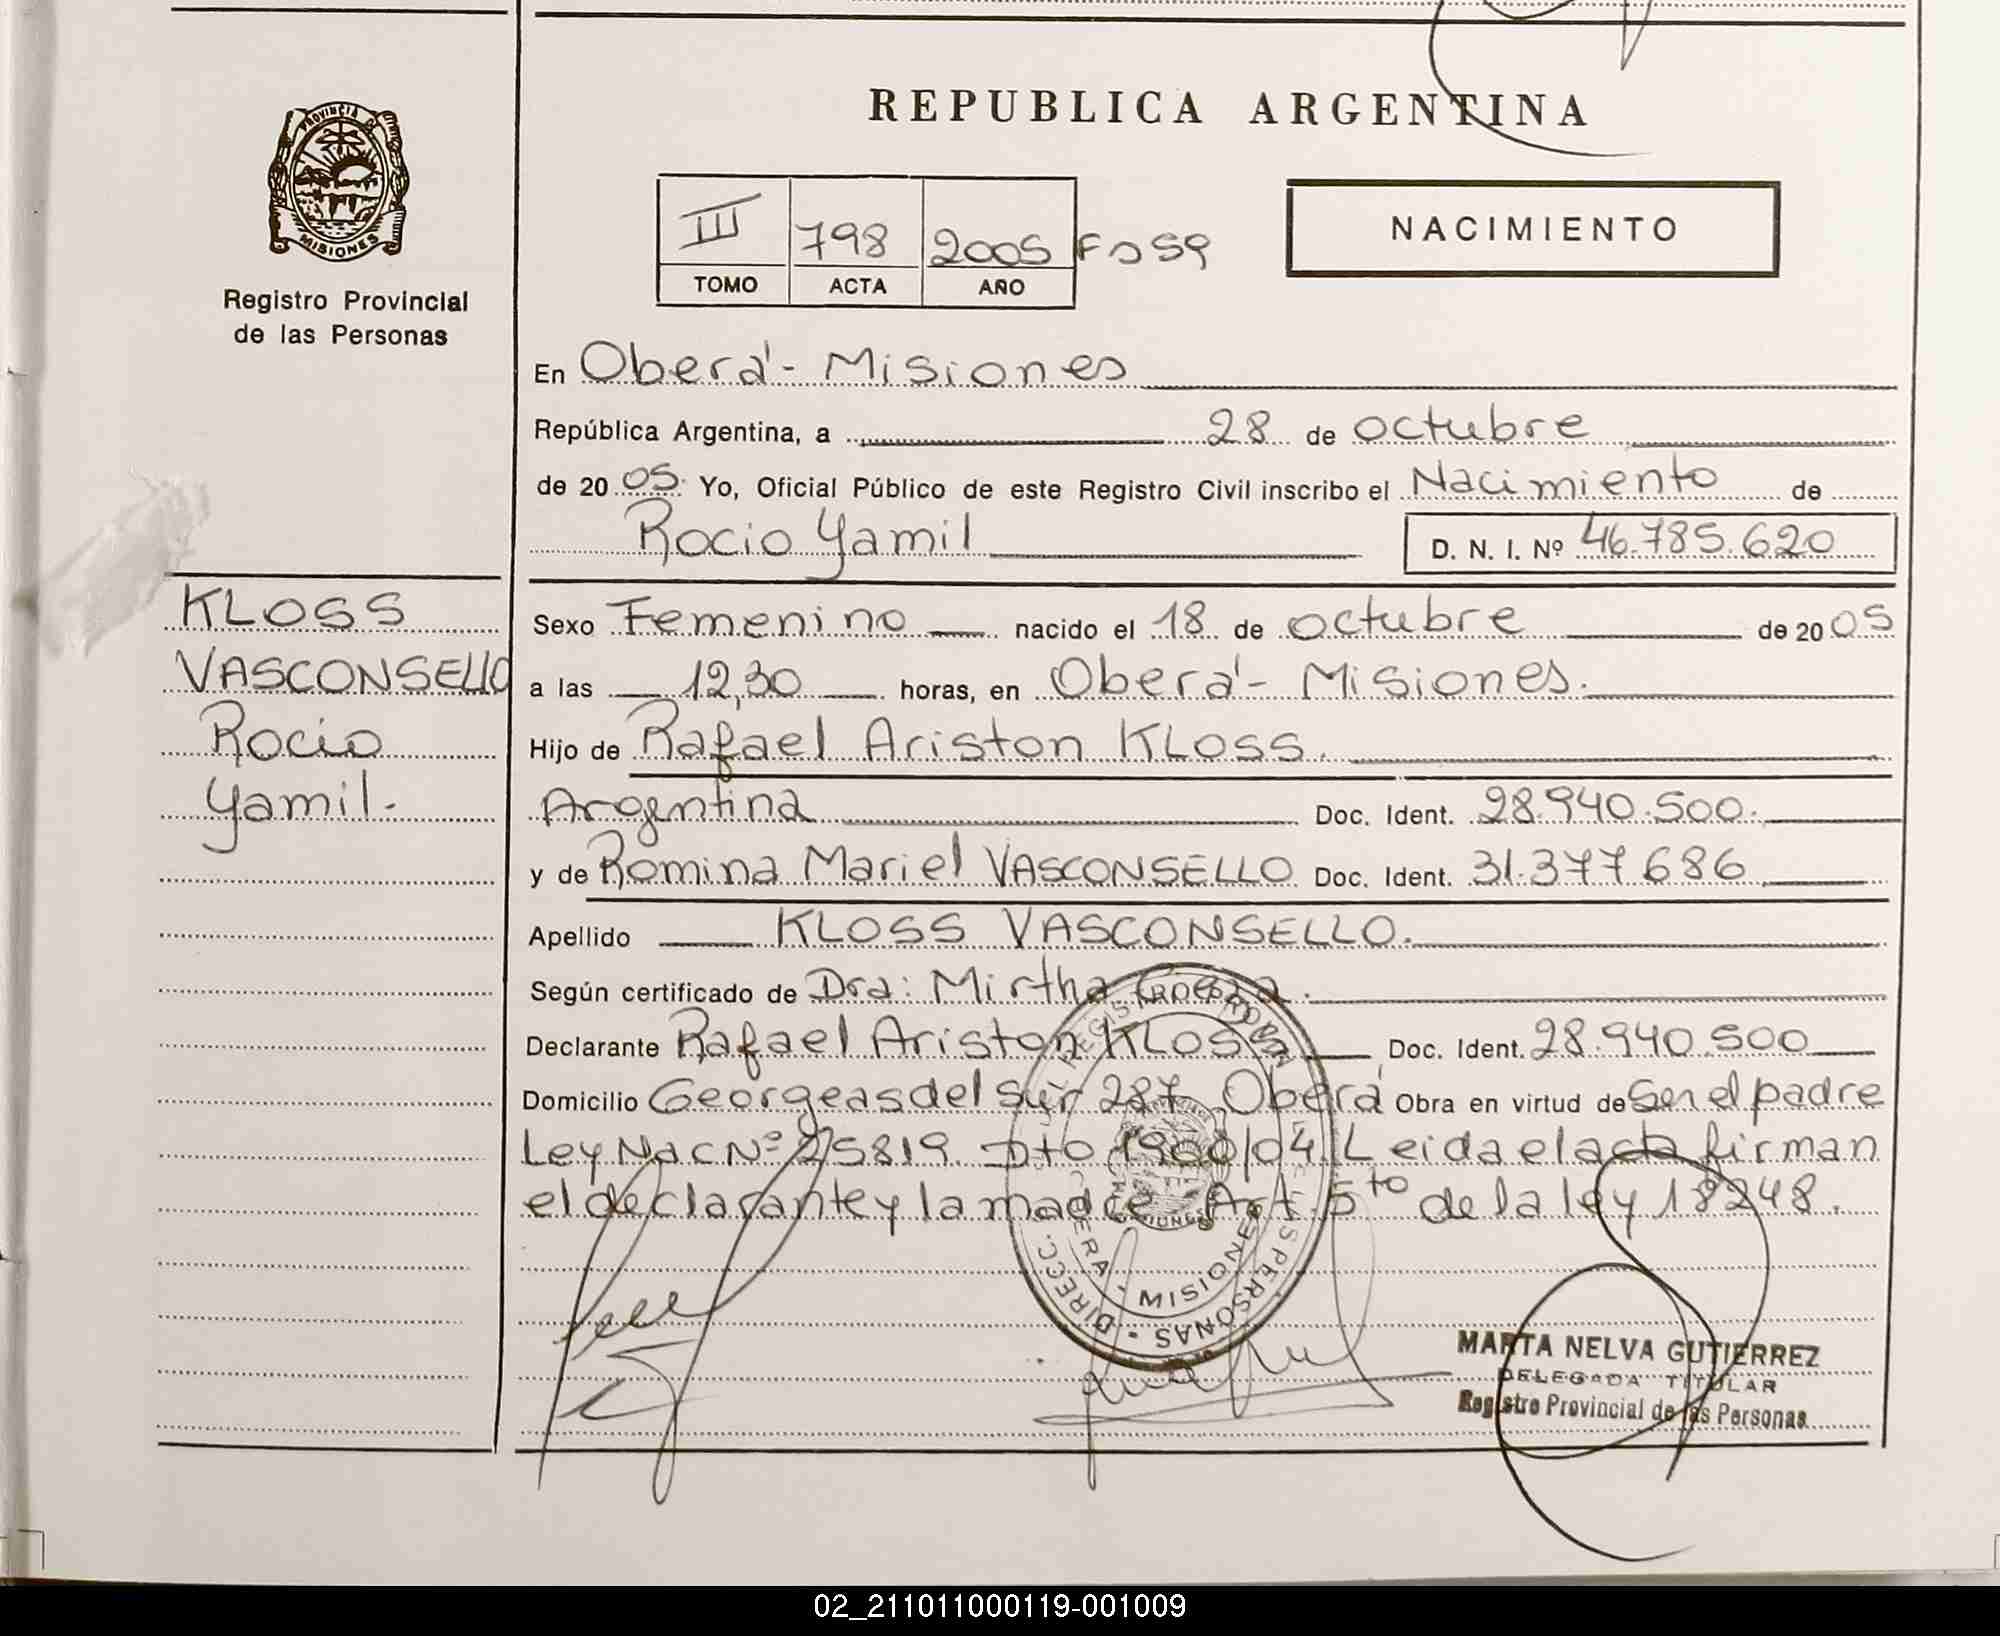 REPUBLICA ARGENTINA
PROVINCIA DE
MISIONES
Registro Provincial
de las Personas
III 798 2005 Fº 59
TOMO ACTA AÑO
NACIMIENTO
En Oberá - Misiones
República Argentina, a 28 de octubre
de 2005. Yo, Oficial Público de este Registro Civil inscribo el Nacimiento de
Rocio Yamil D. N. I. Nº 46.785.620
KLOSS
VASCONSELLO
Rocio
Yamil.-
Sexo Femenino nacido el 18 de octubre de 2005
a las 12,30 horas, en Oberá - Misiones.
Hijo de Rafael Ariston KLOSS.
Argentina Doc. Ident. 28.940.500.
y de Romina Mariel VASCONSELLO Doc. Ident. 31.377.686
Apellido KLOSS VASCONSELLO.
Según certificado de Dra: Mirtha
Declarante Rafael Ariston KLOSS Doc. Ident. 28.940.500
Domicilio Georgeas del Sur 287 Oberá Obra en virtud de Ser el padre
Ley Nac Nº 25819. Dto 1900/04. Leida el acta firman
el declarante y la madre. Art. 5to de la ley 18248.
MISIONES
MARTA NELVA GUTIERREZ
DELEGADA TITULAR
Registro Provincial de las Personas
02_211011000119-001009